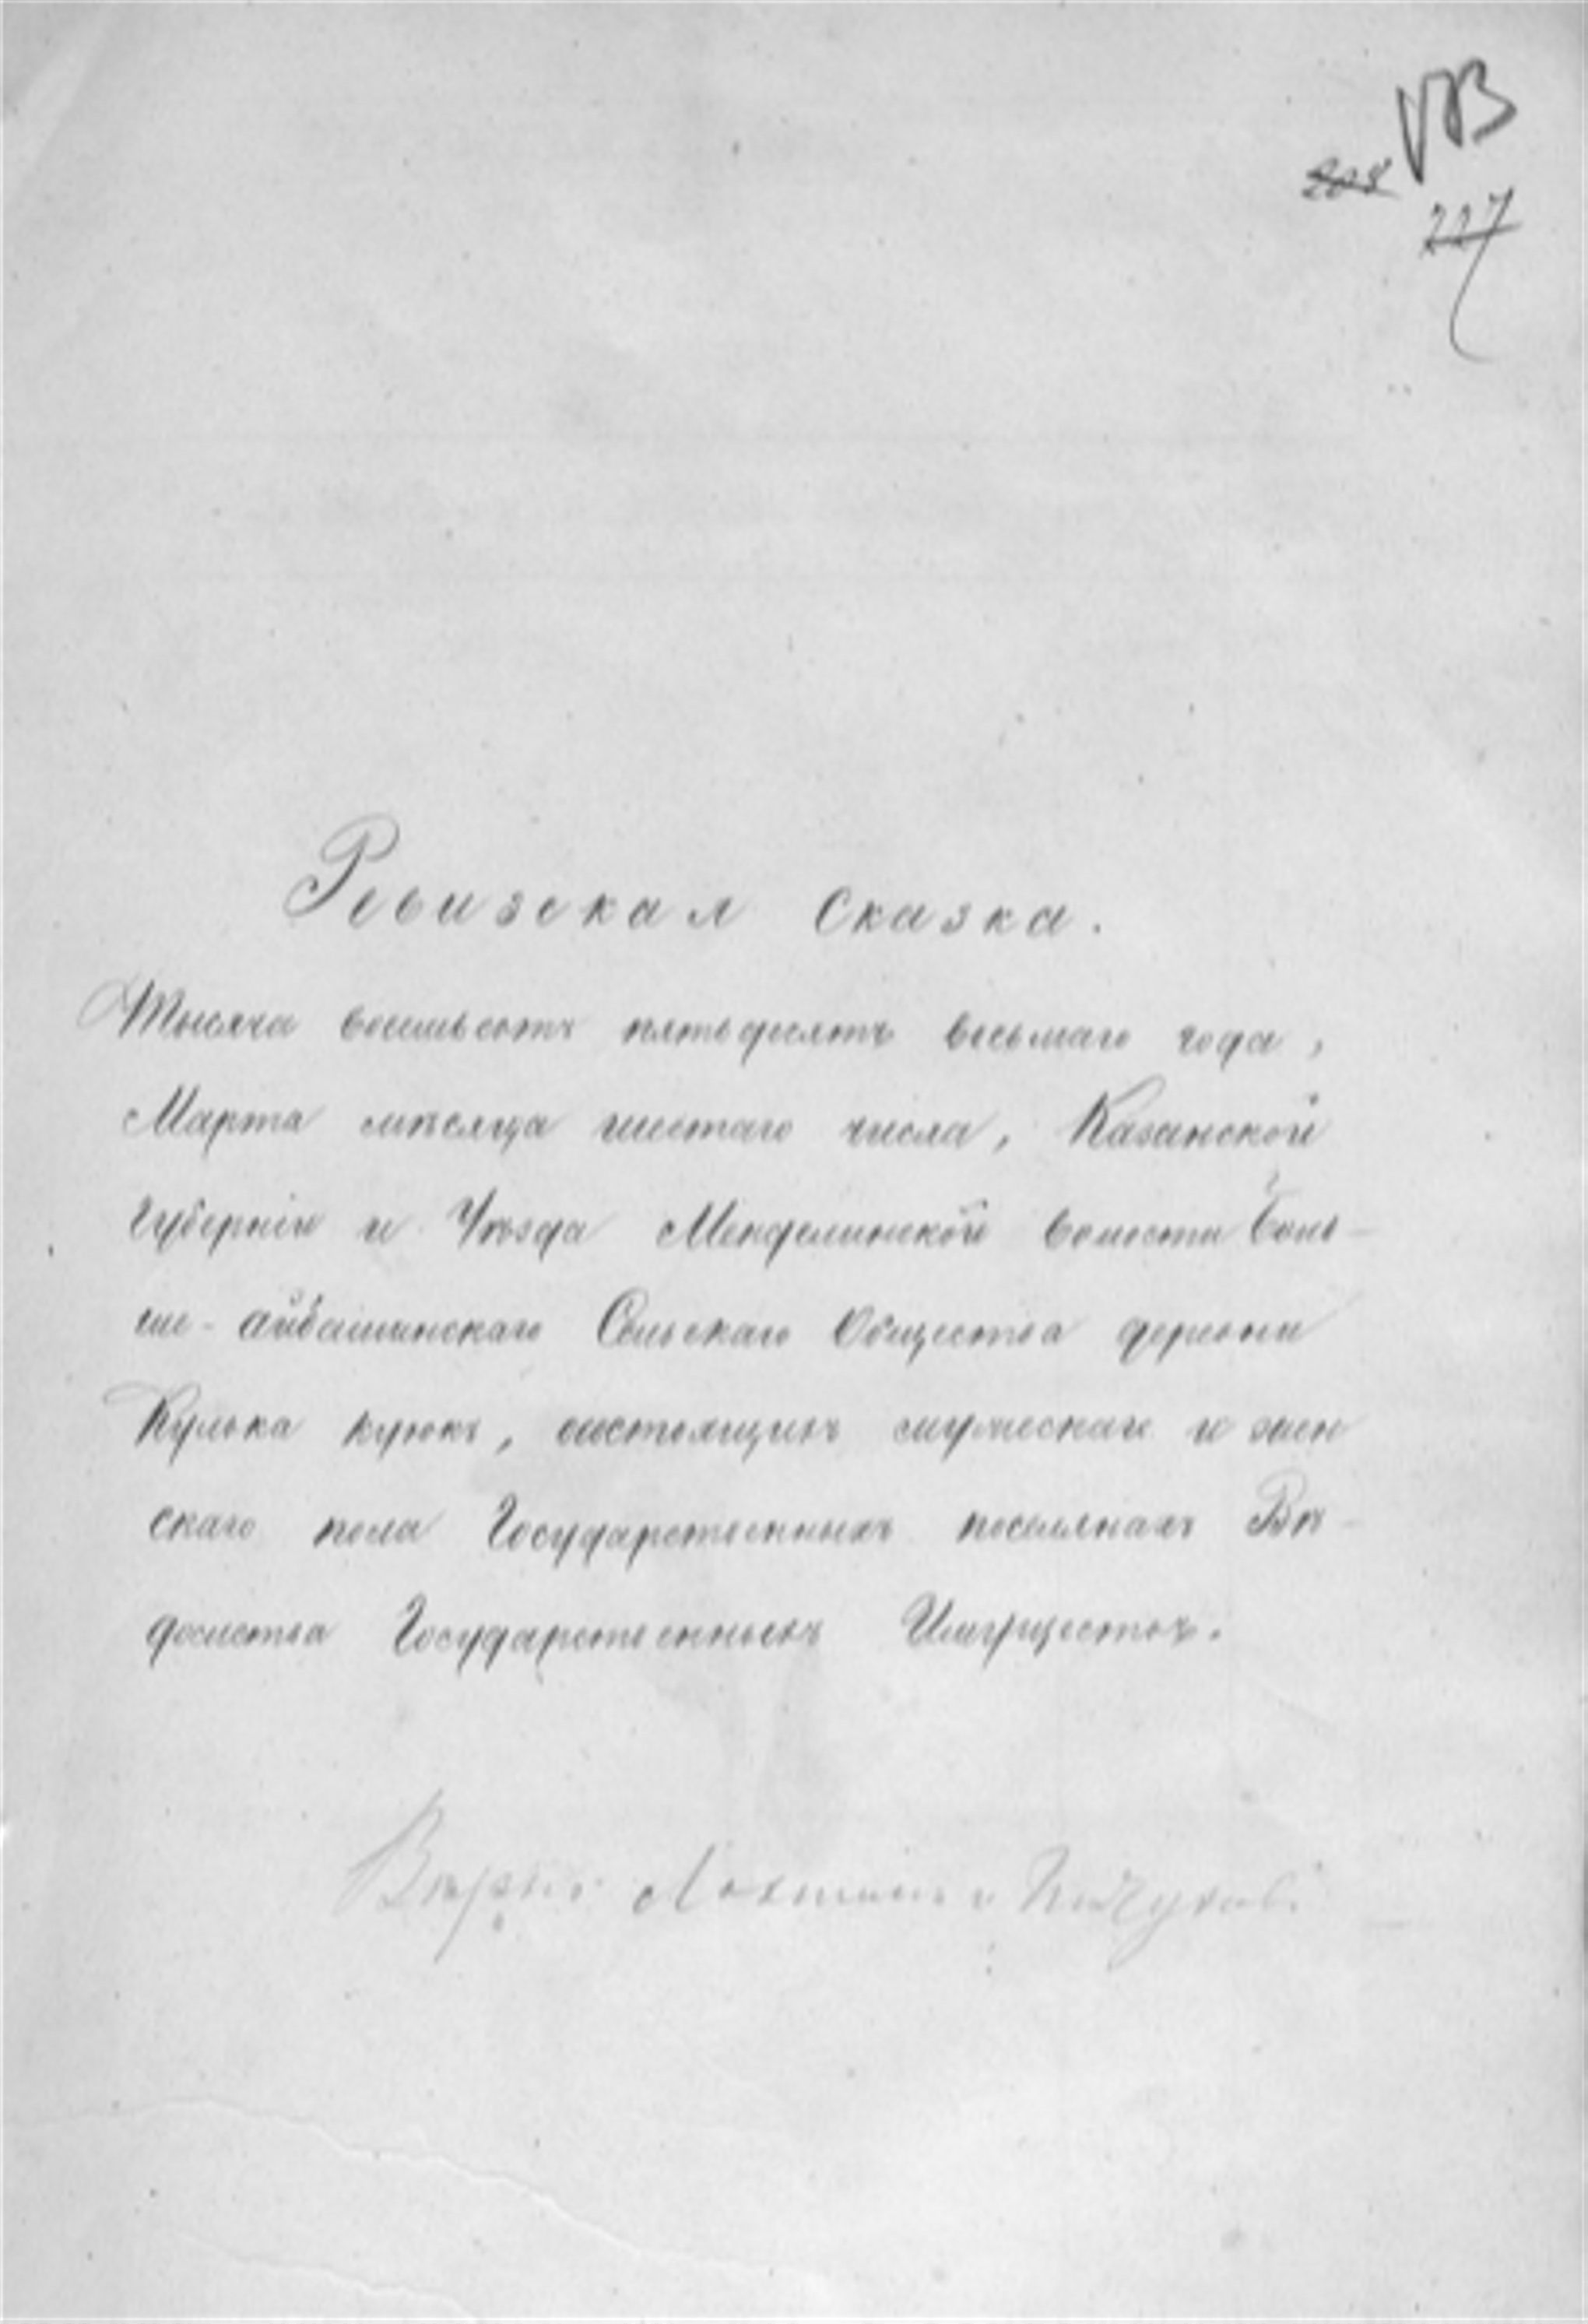 227
Ревизская Сказка.
Тысяча восемьсотъ пятьдесятъ восьмаго года,
Марта мѣсяца шестаго числа, Казанской
Губерніи и Уѣзда Менделинской волости Боль-
ше-айбашинскаго Сельскаго Общества деревни
Кулька куюкъ, состоящихъ мужескаго и жен
скаго пола Государственныхъ поселянахъ Вѣ-
домства Государственныхъ Имуществъ.